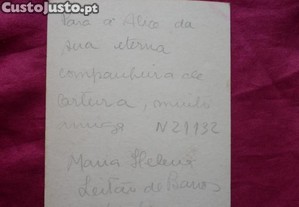 CustoJusto.pt
Para a Alice da
sua eterna
companheira de
carteira, muito
amiga N21932
Maria Helena
Leitão de Barros